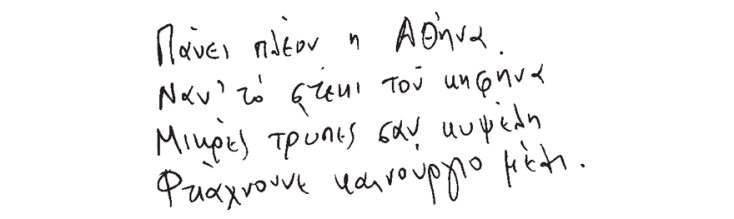 Παύει πλέον η Αθήνα.
Ναν' το στέκι του κηφήνα
Μικρές τρυπες σαν κυψέλη
Φτιάχνουνε καινούργιο μέλι.